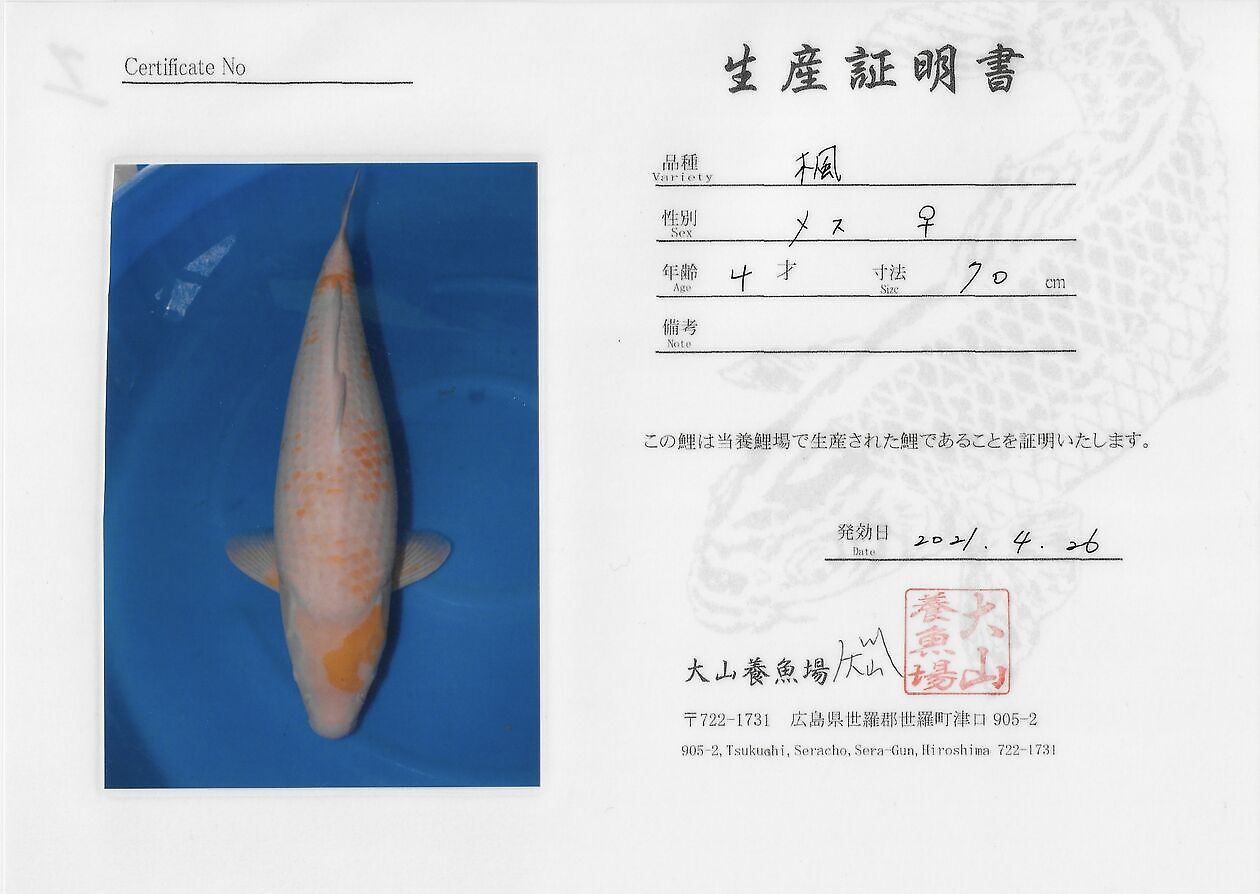 Certificate No
生産証明書
品種 楓
Variety
性別 メス ♀
Sex
年齢 4 才 寸法 70 cm
Age Size
備考
Note
この鯉は当養鯉場で生産された鯉であることを証明いたします。
発効日 2021. 4. 26
Date
大山養魚場
大山養魚場
〒722-1731 広島県世羅郡世羅町津口 905-2
905-2, Tsukuchi, Seracho, Sera-Gun, Hiroshima 722-1731